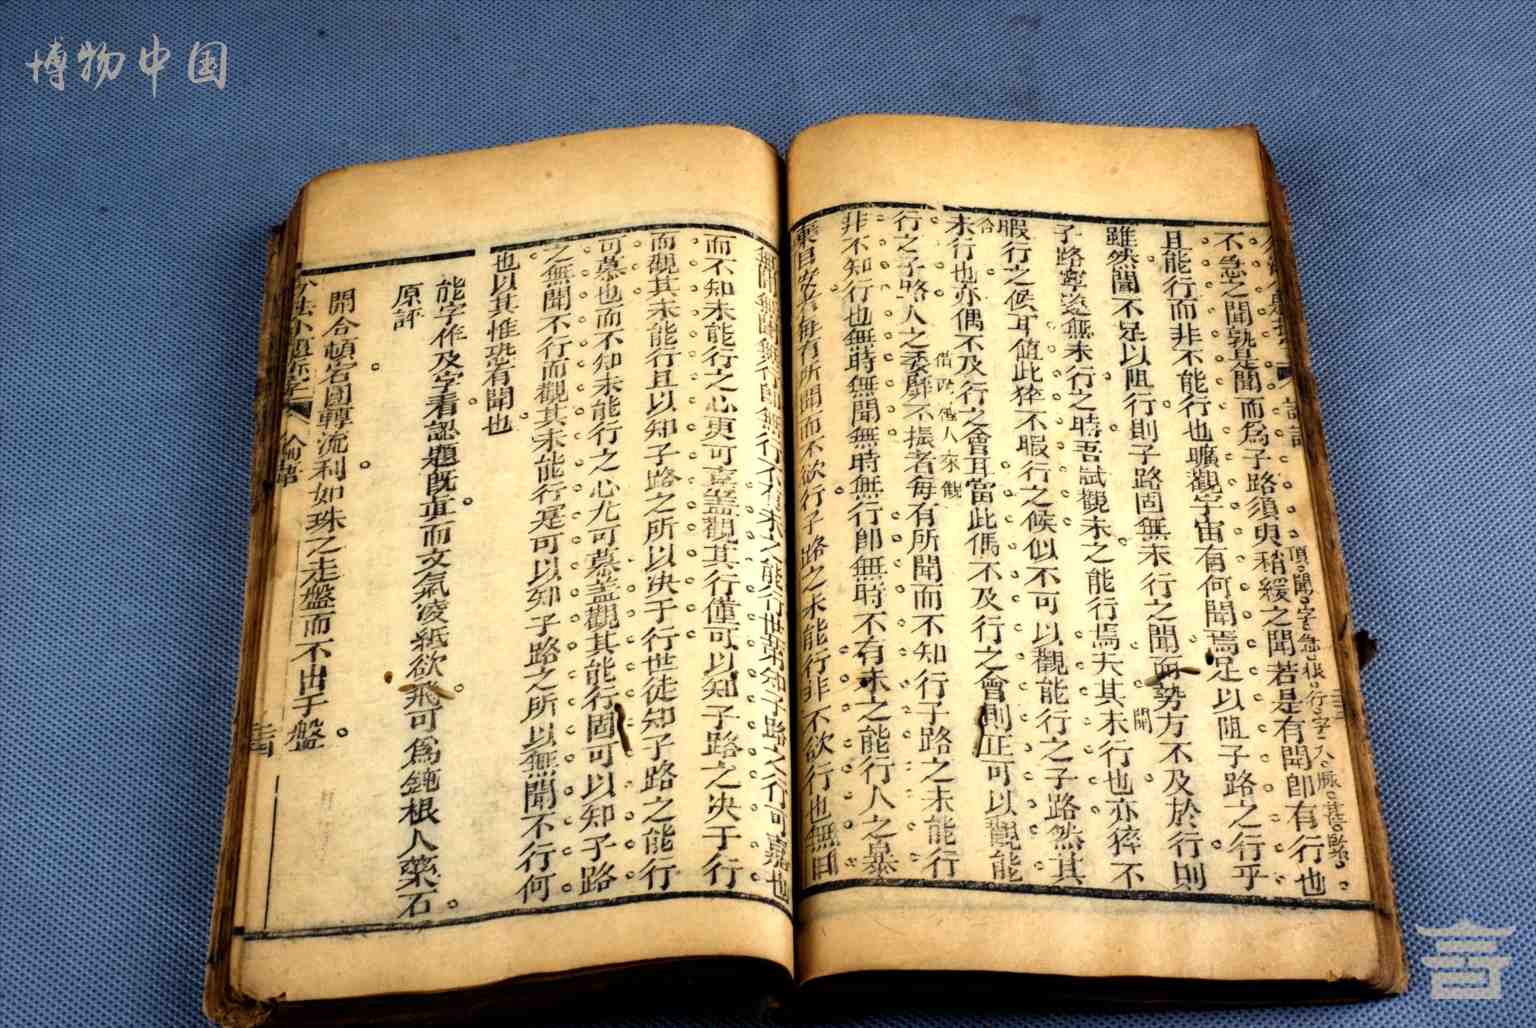 博物中国
不急之聞孰是聞而為子路須臾稍緩之聞若是有聞即有行也
且能行而非不能行也曠觀宇宙有何聞焉足以阻子路之行乎
雖然聞不足以阻行則子路固無未行之聞而勢方不及於行則
聞
子路寧遂無未行之時吾試觀未之能行焉夫其未行也亦猝不
暇行之候耳值此猝不暇行之候似不可以觀能行之子路然其
未行也亦偶不及行之會耳當此偶不及行之會則正可以觀能
行之子路人之委靡不振者每有所聞而不知行子路之未能行
非不知行也無時無聞無時無行即無時不有未之能行人之
每有所聞而不欲行子路之未能行非不欲行也無日
無聞無日無行即無行不有未之能行世第知子路之行可嘉也
而不知未能行之心更可嘉蓋觀其行僅可以知子路之決于行
而觀其未能行且以知子路之所以決于行世徒知子路之能行
可慕也而不知未能行之心尤可慕蓋觀其能行固可以知子路
之無聞不行而觀其未能行寔可以知子路之所以無聞不行何
也以其惟恐有聞也
能字作及字看認題既真而文氣凌紙欲飛可為鈍根人藥石
原評
開合頓宕圓轉流利如珠之走盤而不出于盤